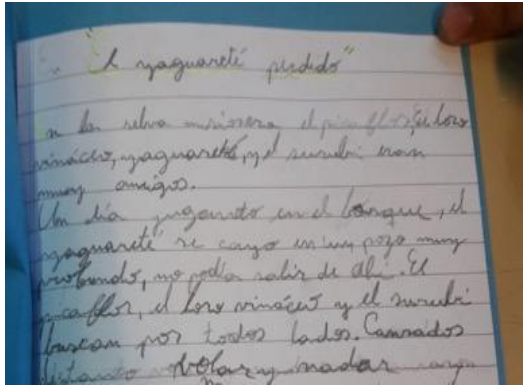 "El yaguareté perdido"
n la selva misionera, el picaflor, el loro
vináceo, yaguareté, y el surubí eran
muy amigos.
Un día jugando en el bosque, el
yaguareté se cayo en un pozo muy
profundo, no podía salir de allí. El
picaflor, el loro vináceo y el surubí
buscan por todos lados. Cansados
volar y nadar